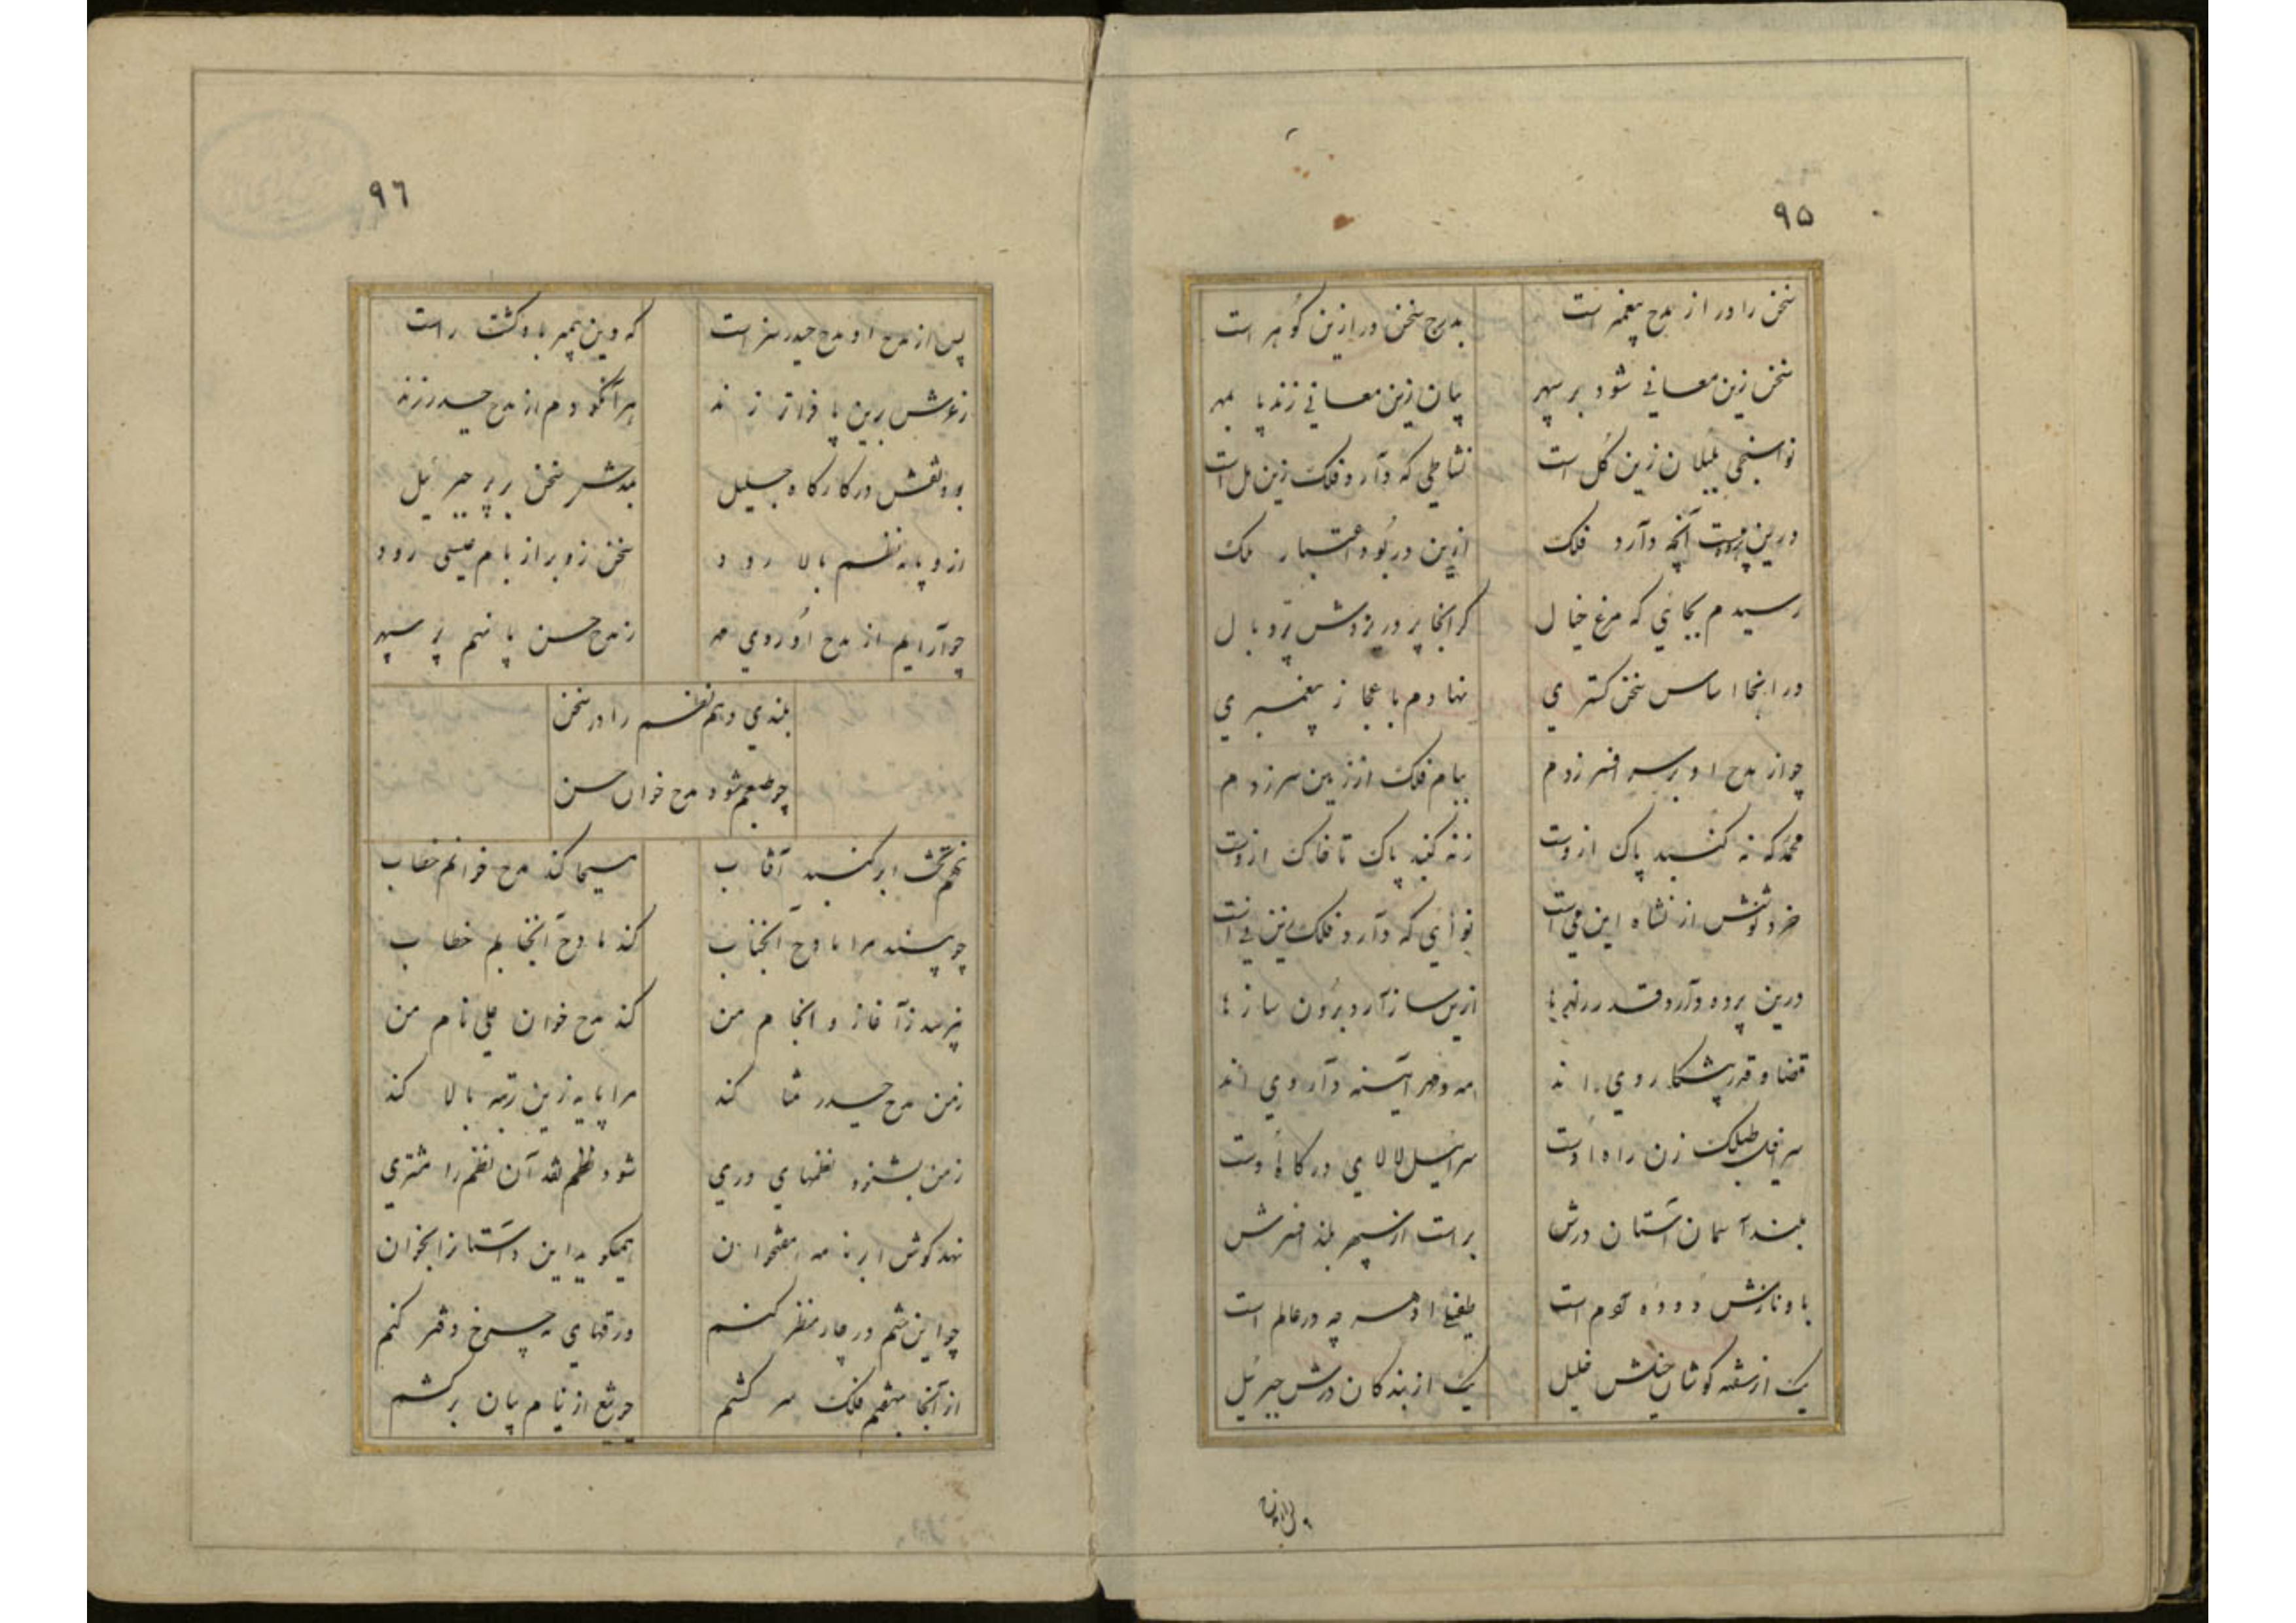 ۹۵
سخن را در از مدح پیغمبر است بدرج سخن در ازین گوهر است
سخن زین معانی شود بر سپهر بیان زین معانی زند پا بمهر
نواسنجی بلبلان زین گل است نشاطی که دارد فلک زین مل است
درین پرده است آنچه دارد فلک ازین در بود اعتبار ملک
رسیدم بجائی که مرغ خیال گر آنجا پرد ریزدش پر و بال
در اینجا اساس سخن گستری نهادم باعجاز پیغمبری
چو از مدح او بر سر افسر زدم ببام فلک از زمین سر زدم
محمد که نه گنبد پاک ازوست ز نه گنبد پاک تا خاک ازوست
خرد نوشش از نشاه این می است نوائی که دارد فلک زین نی است
درین پرده دارد قدر ازین ساز آرد برون سازها
قضا و قدر پیشکار وی اند مه و مهر آئینه دار وی اند
سرافیل طبلک زن راه اوست سرائیل لالای درگاه اوست
بلند آسمان آستان درش براست از سپهر بلند افسرش
باو نازش دوده آدم است طفیل او هر چه در عالم است
یک از سفره خلیل یک از بندگان درش جبرئیل
۹٦
پس از مدح او مدح حیدر سزاست که دین پیمبر باو گشت راست
ز عرش برین پا فراتر زند هر آنکو دم از مدح حیدر زند
بود نقش در کارگاه جلیل سخن بر پر جبرئیل
ازو پایه نظم بالا رود سخن زو بر از بام عیسی رود
چو آرایم از مدح او روی مهر ز مدح حسن پا نهم بر سپهر
بلندی دهم نظم را در سخن
چو طبعم شود مدح خوان حسن
نهم تخت بر گنبد آفتاب مسیحا کند مدح خوانم خطاب
چو بیند مرا مادح آنجناب کند مادح آنجنابم خطاب
بپرسد ز آغاز و انجام من کند مدح خوان علی نام من
ز من مدح حیدر ثنا کند مرا پایه زین رتبه بالا کند
ز من بشنود نظمهای دری شود نظم آن نظم را مشتری
نهد گوش بر نامه هفتخوان همیگوید این داستان را بخوان
چو این نثم در چار منظر کنم ورقهای نه چرخ دفتر کنم
از آنجا بهفتم فلک سر کشم چو تیغ از نیام بیان برکشم